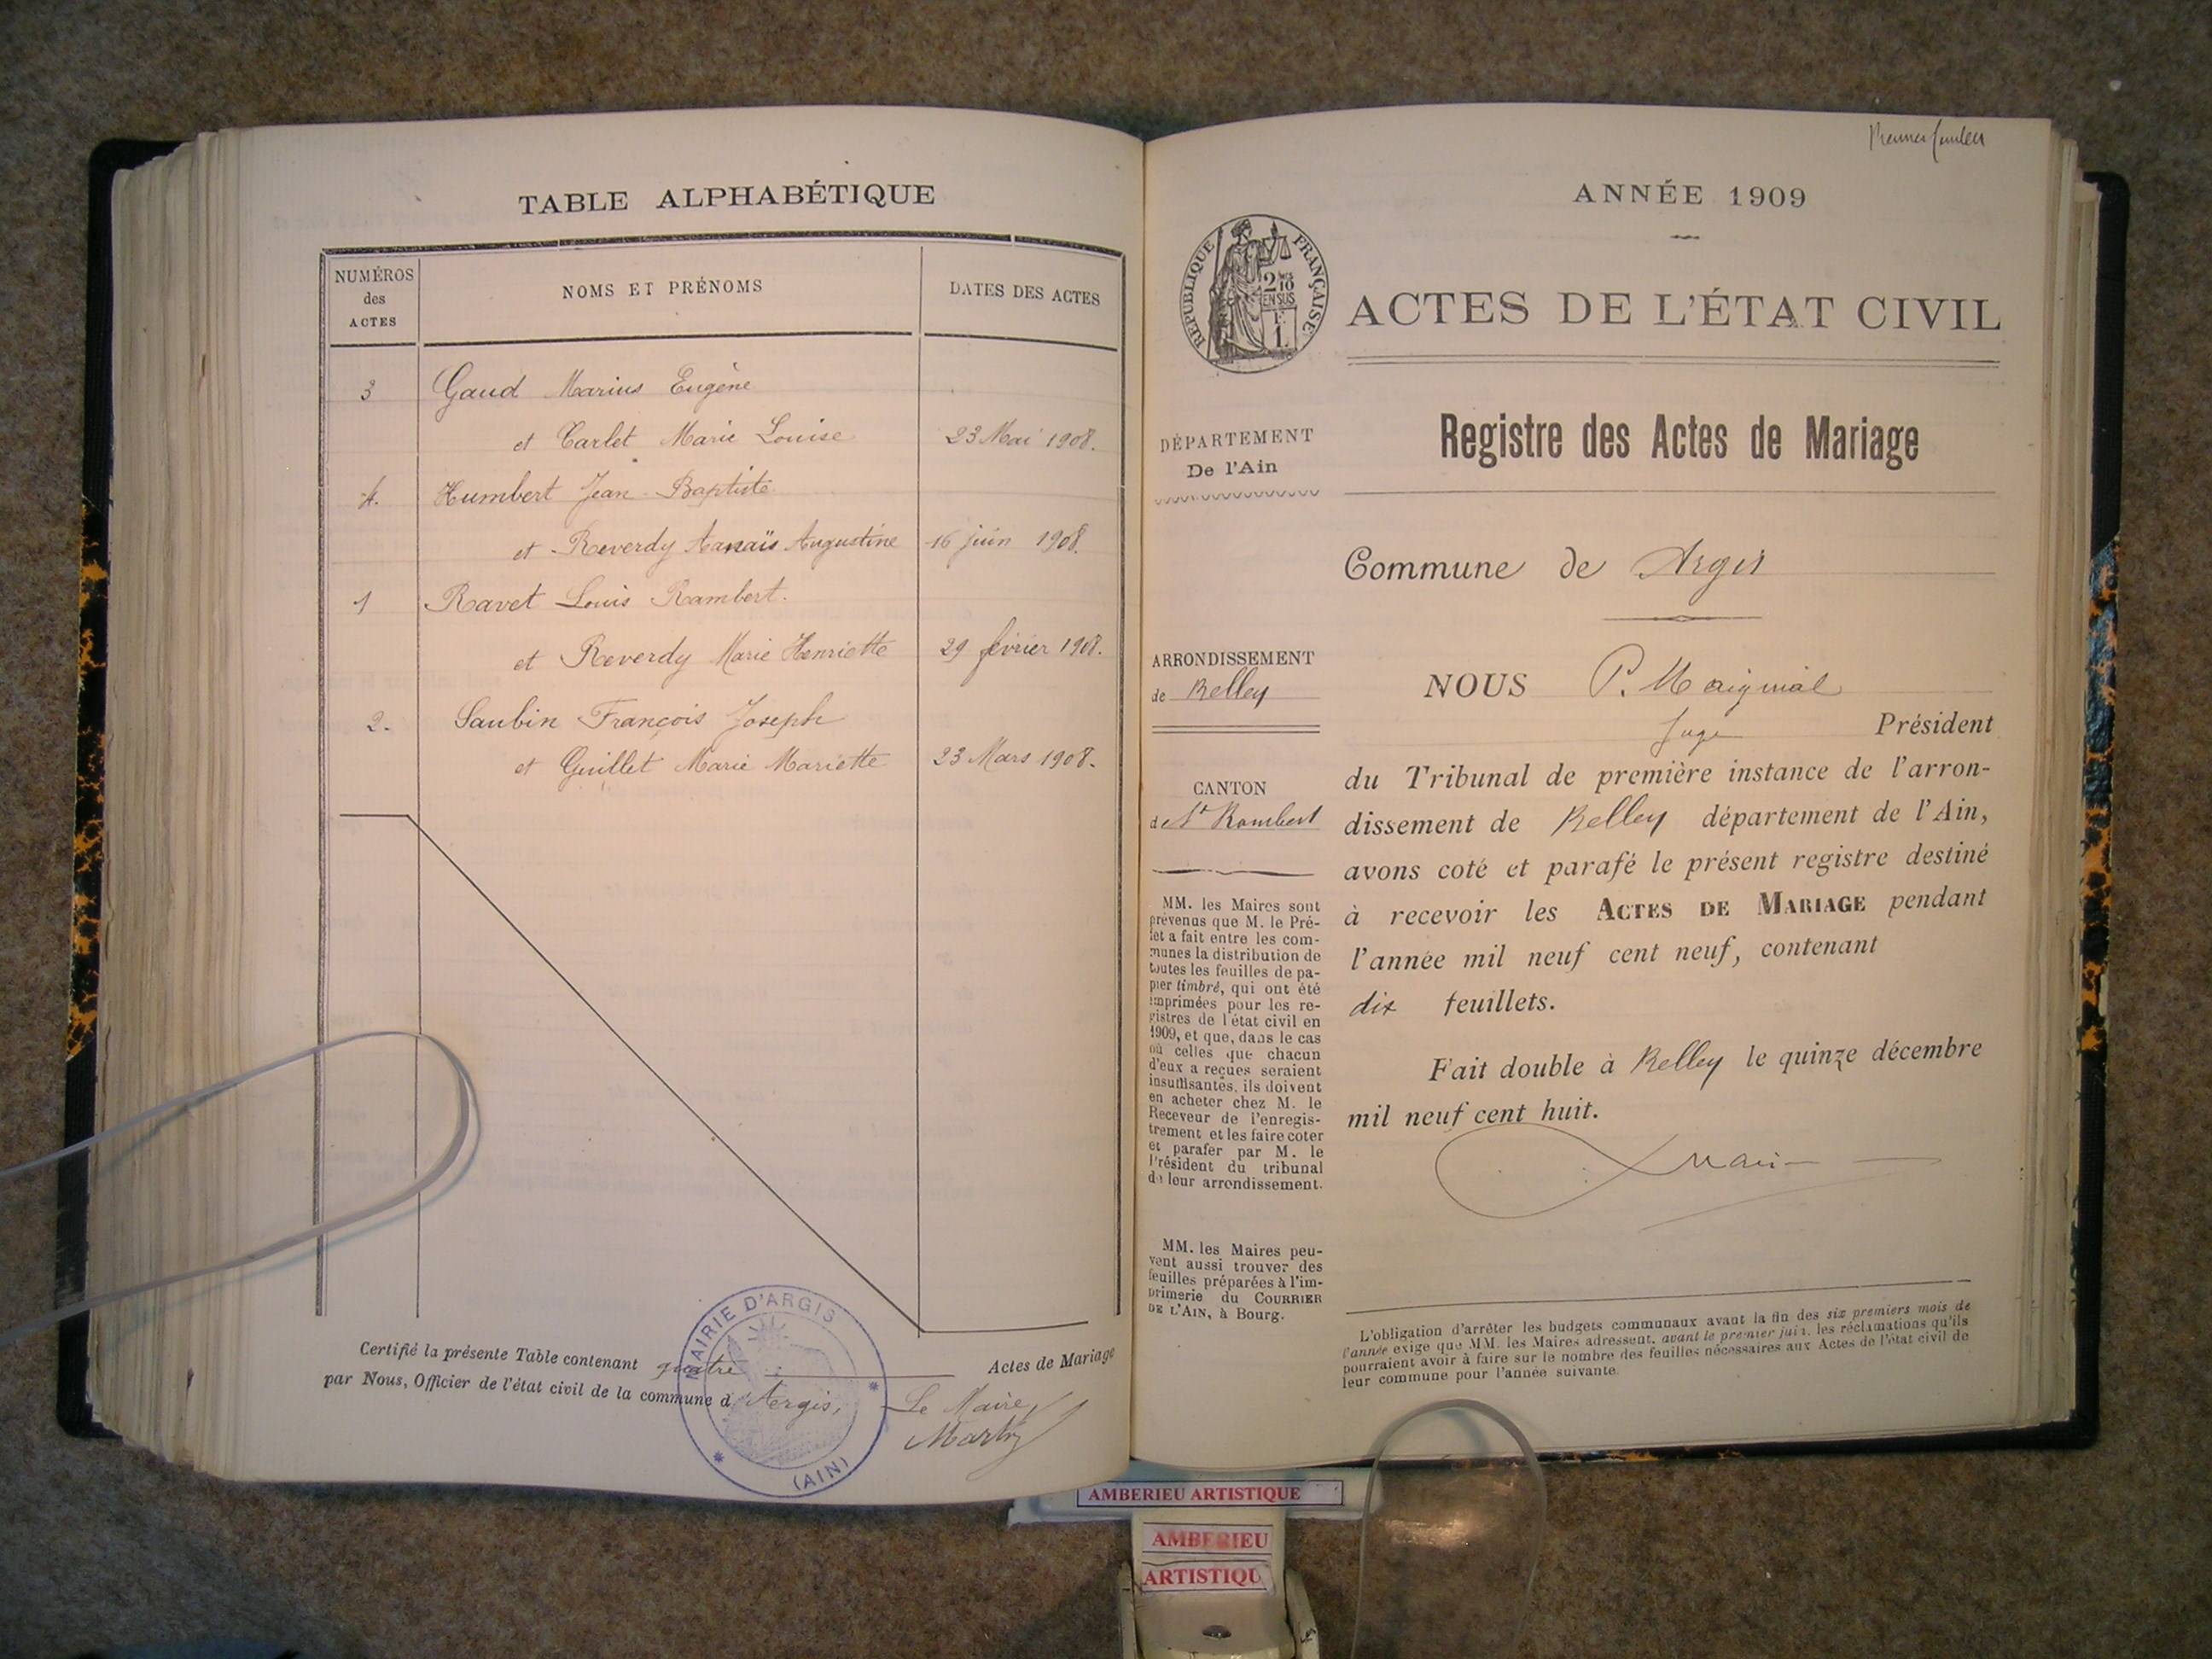 TABLE ALPHABÉTIQUE
NUMÉROS
des
ACTES
NOMS ET PRÉNOMS
DATES DES ACTES
3 Gaud Marius Eugène
et Carlet Marie Louise 23 Mai 1908.
4. Humbert Jean-Baptiste
et Reverdy Anaïs Augustine 16 juin 1908.
1 Ravet Louis Rambert.
et Reverdy Marie Henriette 29 février 1908.
2. Saubin François Joseph
et Guillet Marie Mariette 23 Mars 1908.
Certifié la présente Table contenant quatre Actes de Mariage
par Nous, Officier de l'état civil de la commune d'Argis,
Le Maire,
MAIRIE D'ARGIS
(AIN)
Premier feuillet
ANNÉE 1909
RÉPUBLIQUE FRANÇAISE
2/10
EN SUS
ACTES DE L'ÉTAT CIVIL
Registre des Actes de Mariage
DÉPARTEMENT
De l'Ain
Commune de Argis
ARRONDISSEMENT
de Belley
CANTON
de St Rambert
MM. les Maires sont
prévenus que M. le Pré-
fet a fait entre les com-
munes la distribution de
toutes les feuilles de pa-
pier timbré, qui ont été
imprimées pour les re-
gistres de l'état civil en
1909, et que, dans le cas
où celles que chacun
d'eux a reçues seraient
insuffisantes, ils doivent
en acheter chez M. le
Receveur de l'enregis-
trement et les faire coter
et parafer par M. le
Président du tribunal
de leur arrondissement.
MM. les Maires peu-
vent aussi trouver des
feuilles préparées à l'im-
primerie du COURRIER
DE L'AIN, à Bourg.
NOUS P. Maignial
Juge Président
du Tribunal de première instance de l'arron-
dissement de Belley département de l'Ain,
avons coté et parafé le présent registre destiné
à recevoir les ACTES DE MARIAGE pendant
l'année mil neuf cent neuf, contenant
dix feuillets.
Fait double à Belley le quinze décembre
mil neuf cent huit.
L'obligation d'arrêter les budgets communaux avant la fin des six premiers mois de
l'année exige que MM. les Maires adressent, avant le premier juin, les réclamations qu'ils
pourraient avoir à faire sur le nombre des feuilles nécessaires aux Actes de l'état civil de
leur commune pour l'année suivante.
AMBERIEU ARTISTIQUE
AMBERIEU
ARTISTIQU